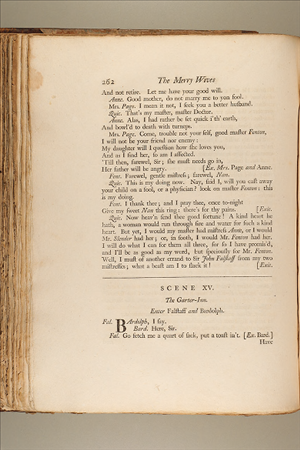 262 The Merry Wives
And not retire. Let me have your good will.
Anne. Good mother, do not marry me to yon fool.
Mrs. Page. I mean it not, I seek you a better husband.
Quic. That's my master, master Doctor.
Anne. Alas, I had rather be set quick i'th' earth,
And bowl'd to death with turneps.
Mrs. Page. Come, trouble not your self, good master Fenton,
I will not be your friend nor enemy:
My daughter will I question how she loves you,
And as I find her, so am I affected.
'Till then, farewel, Sir; she must needs go in,
Her father will be angry. [Ex. Mrs. Page and Anne.
Fent. Farewel, gentle mistress; farewel, Nan.
Quic. This is my doing now. Nay, said I, will you cast away
your child on a fool, or a physician? look on master Fenton: this
is my doing.
Fent. I thank thee; and I pray thee, once to-night
Give my sweet Nan this ring: there's for thy pains. [Exit.
Quic. Now heav'n send thee good fortune! A kind heart he
hath, a woman would run through fire and water for such a kind
heart. But yet, I would my master had mistress Anne, or I would
Mr. Slender had her; or, in sooth, I would Mr. Fenton had her.
I will do what I can for them all three, for so I have promis'd,
and I'll be as good as my word, but speciously for Mr. Fenton.
Well, I must of another errand to Sir John Falstaff from my two
mistresses; what a beast am I to slack it! [Exit.
SCENE XV.
The Garter-Inn.
Enter Falstaff and Bardolph.
Fal. BArdolph, I say.
Bard. Here, Sir.
Fal. Go fetch me a quart of sack, put a toast in't. [Ex. Bard.]
Have